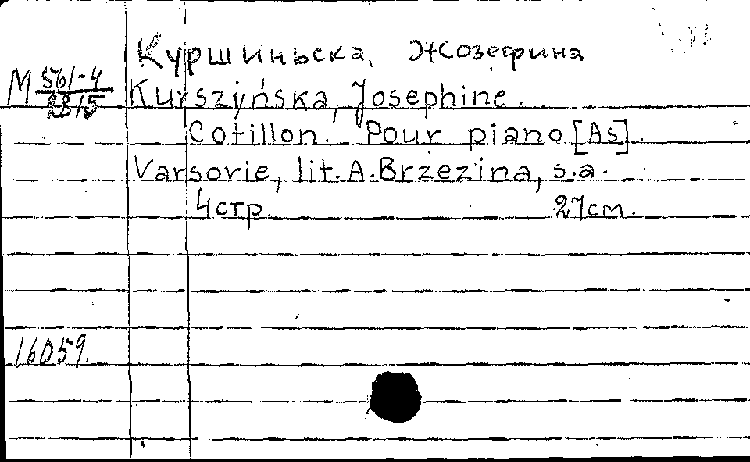 Куршиньска, Жозефина
М 561-4
2815
Kurszyńska, Josephine.
Cotillon. Pour piano [As].
Varsovie, lit. A. Brzezina, s.a.
4 стр. 27 см.
16059.